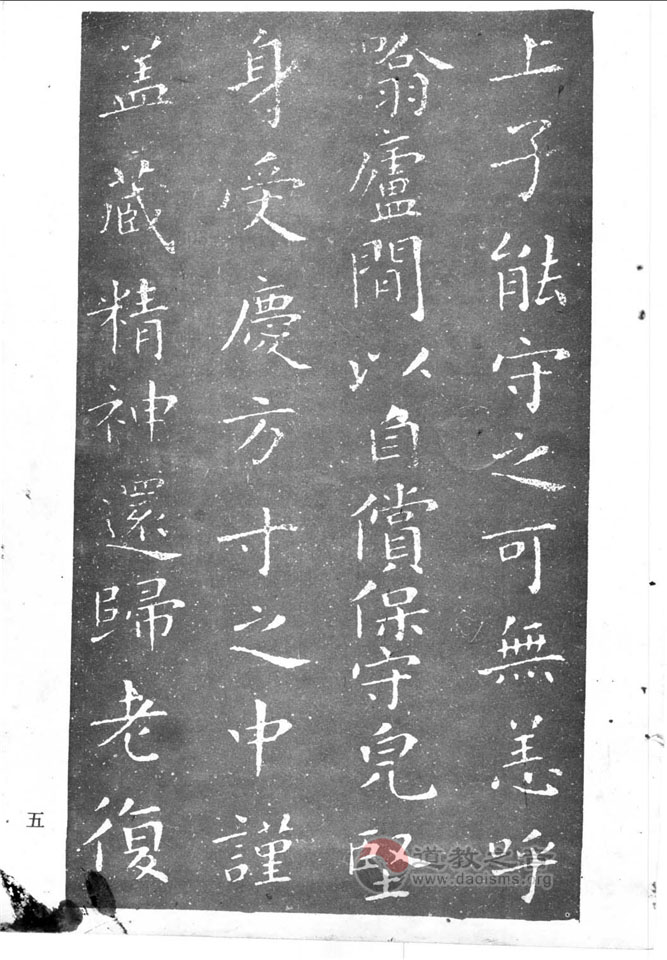 上子能守之可無恙呼
噏廬間以自償保守完堅
身受慶方寸之中謹
盖藏精神還歸老復
五
道教之音
www.daoisms.org